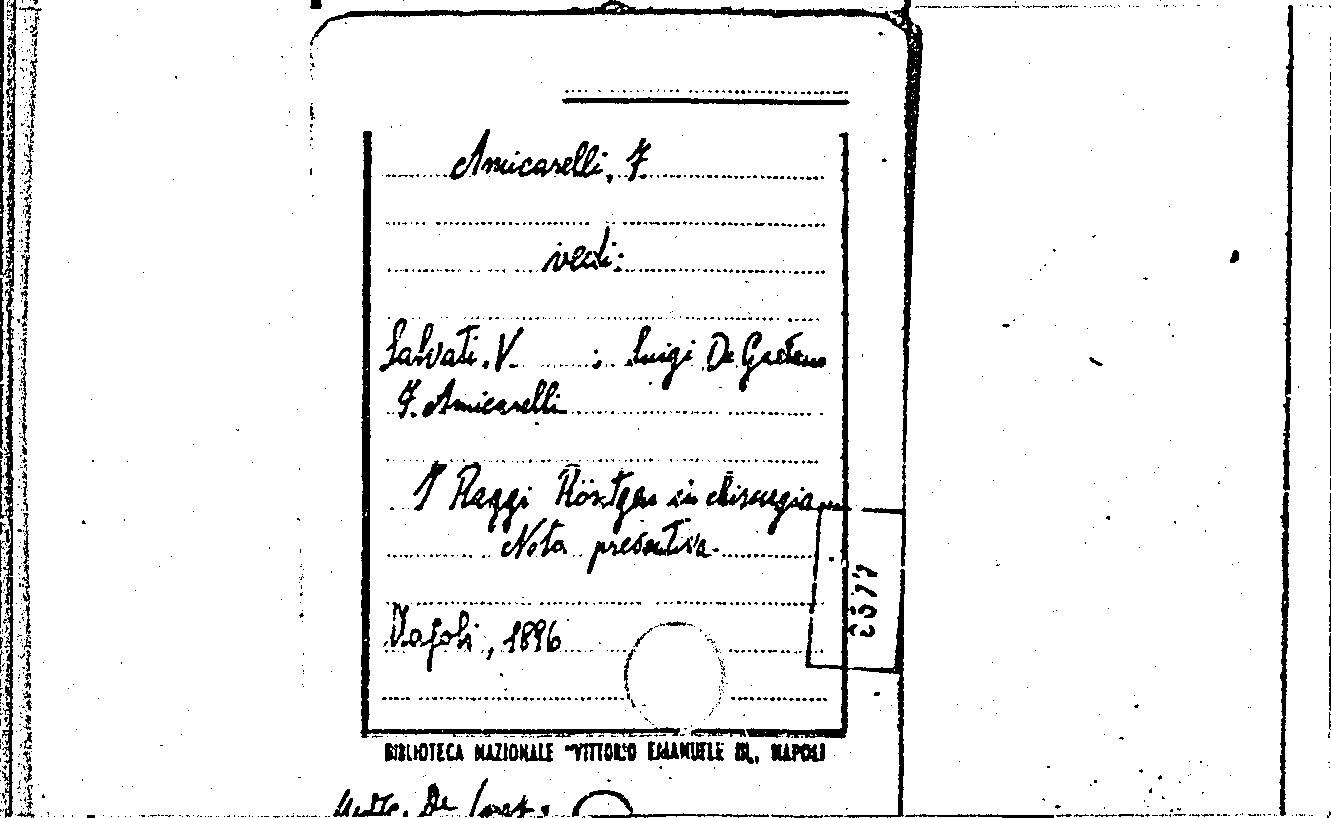 Amicarelli, F.
vedi:
Salvati. V. ; Luigi De Gaetano
F. Amicarelli
I Raggi Röntgen in chirurgia
Nota preventiva.
Napoli, 1896
BIBLIOTECA NAZIONALE "VITTORIO EMANUELE III", NAPOLI
De